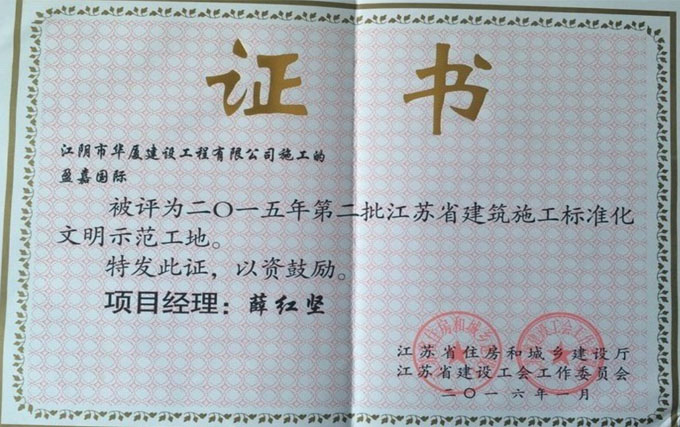 证书
江阴市华厦建设工程有限公司施工的
盈嘉国际
被评为二〇一五年第二批江苏省建筑施工标准化
文明示范工地。
特发此证，以资鼓励。
项目经理：薛红坚
江苏省住房和城乡建设厅
江苏省建设工会工作委员会
二〇一六年一月